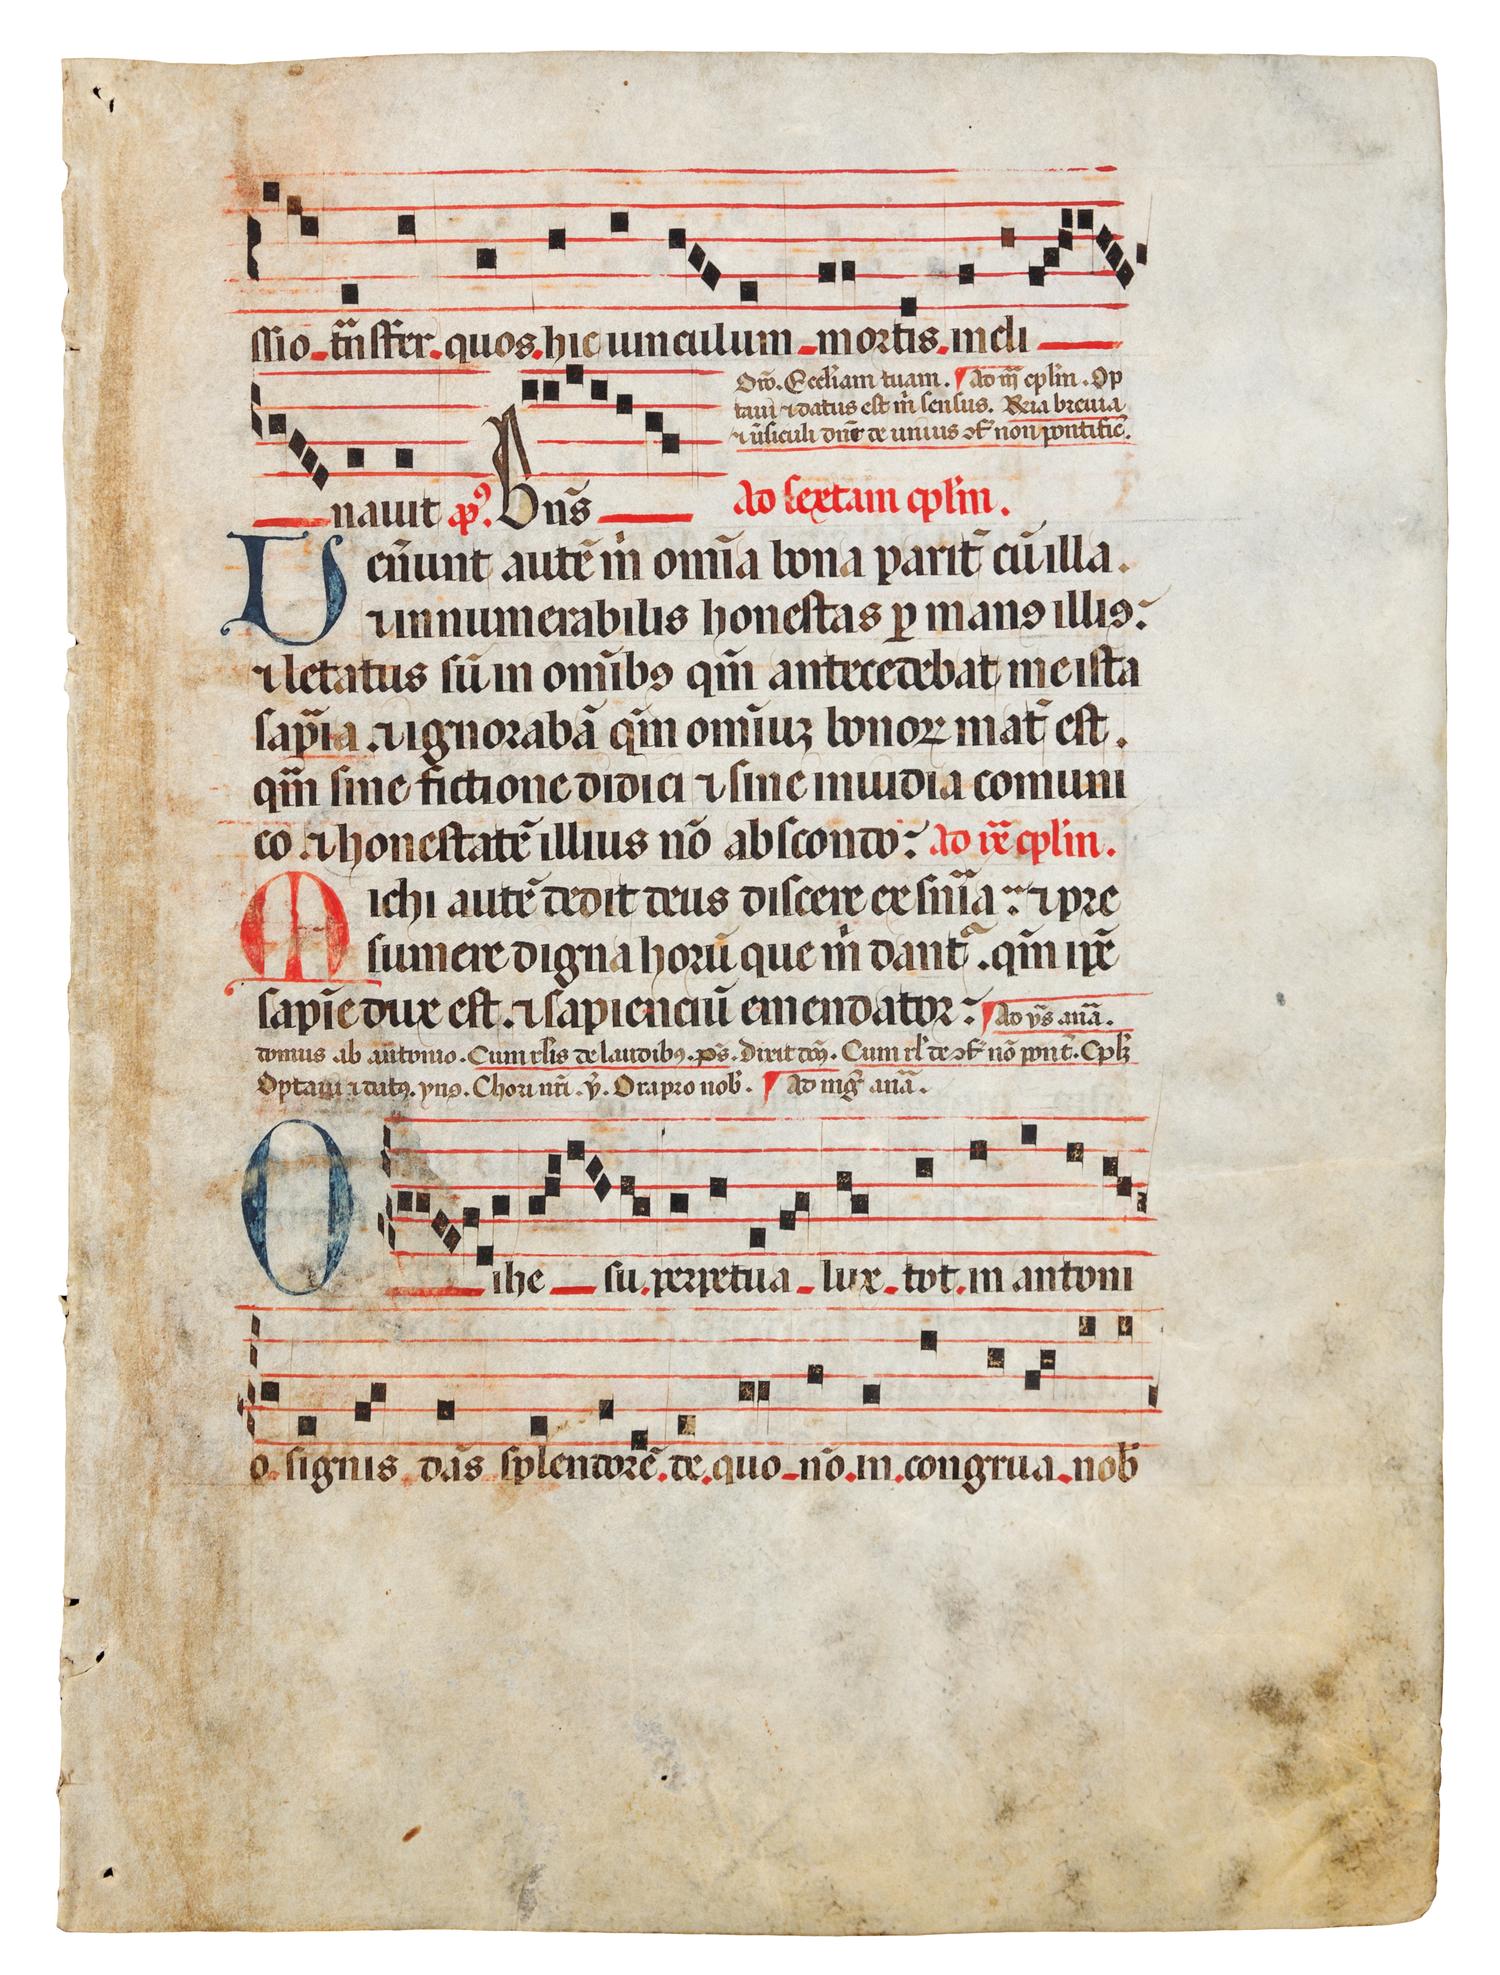 ssio trãsfer quos hic uinculum mortis incli
Orõ. Eccl'iam tuam. Ad iij cpl'm. Op
taui ⁊ datus est m̃ sensus. Rñia breuia
⁊ ũsiculi dñr de unius ɔf non pontific̃.
nauit p̃⁹. Bñs Ad sextam cpl'm.
Uenẽunt autẽ m̃ omĩa bona parit̃ cũ illa.
⁊ innumerabilis honestas p manꝰ illiꝰ.
⁊ letatus sũ in omĩbꝰ qm̃ antecedebat me ista
sapĩa. ⁊ ignorabã qm̃ omĩuꝫ bonoꝝ mat̃ est.
qm̃ sine fictione didici ⁊ sine inuidia comuni
co. ⁊ honestatẽ illius nõ abscondo. Ad ix̃ cpl'm.
Michi autẽ dedit deus dicere ex snĩa. ⁊ pre
sumere digna horũ que m̃ dant̃. qm̃ ip̃e
sapĩe dux est. ⁊ sapienciũ emendator. Ad ỹs anã.
domus ab antonio. Cum rl'is de laudibꝰ. p̃s. Dixit dñs. Cum rl' de ɔf nõ pont̃. Cpl'ꝫ
Optaui ⁊ datꝰ. ynꝰ. Chori nr̃i. ỹ. Ora pro nob̃. Ad mg̃ anã.
O ihe su perpetua lux tot in antoni
o signis dãs splendorẽ de quo nõ in congrua nob̃